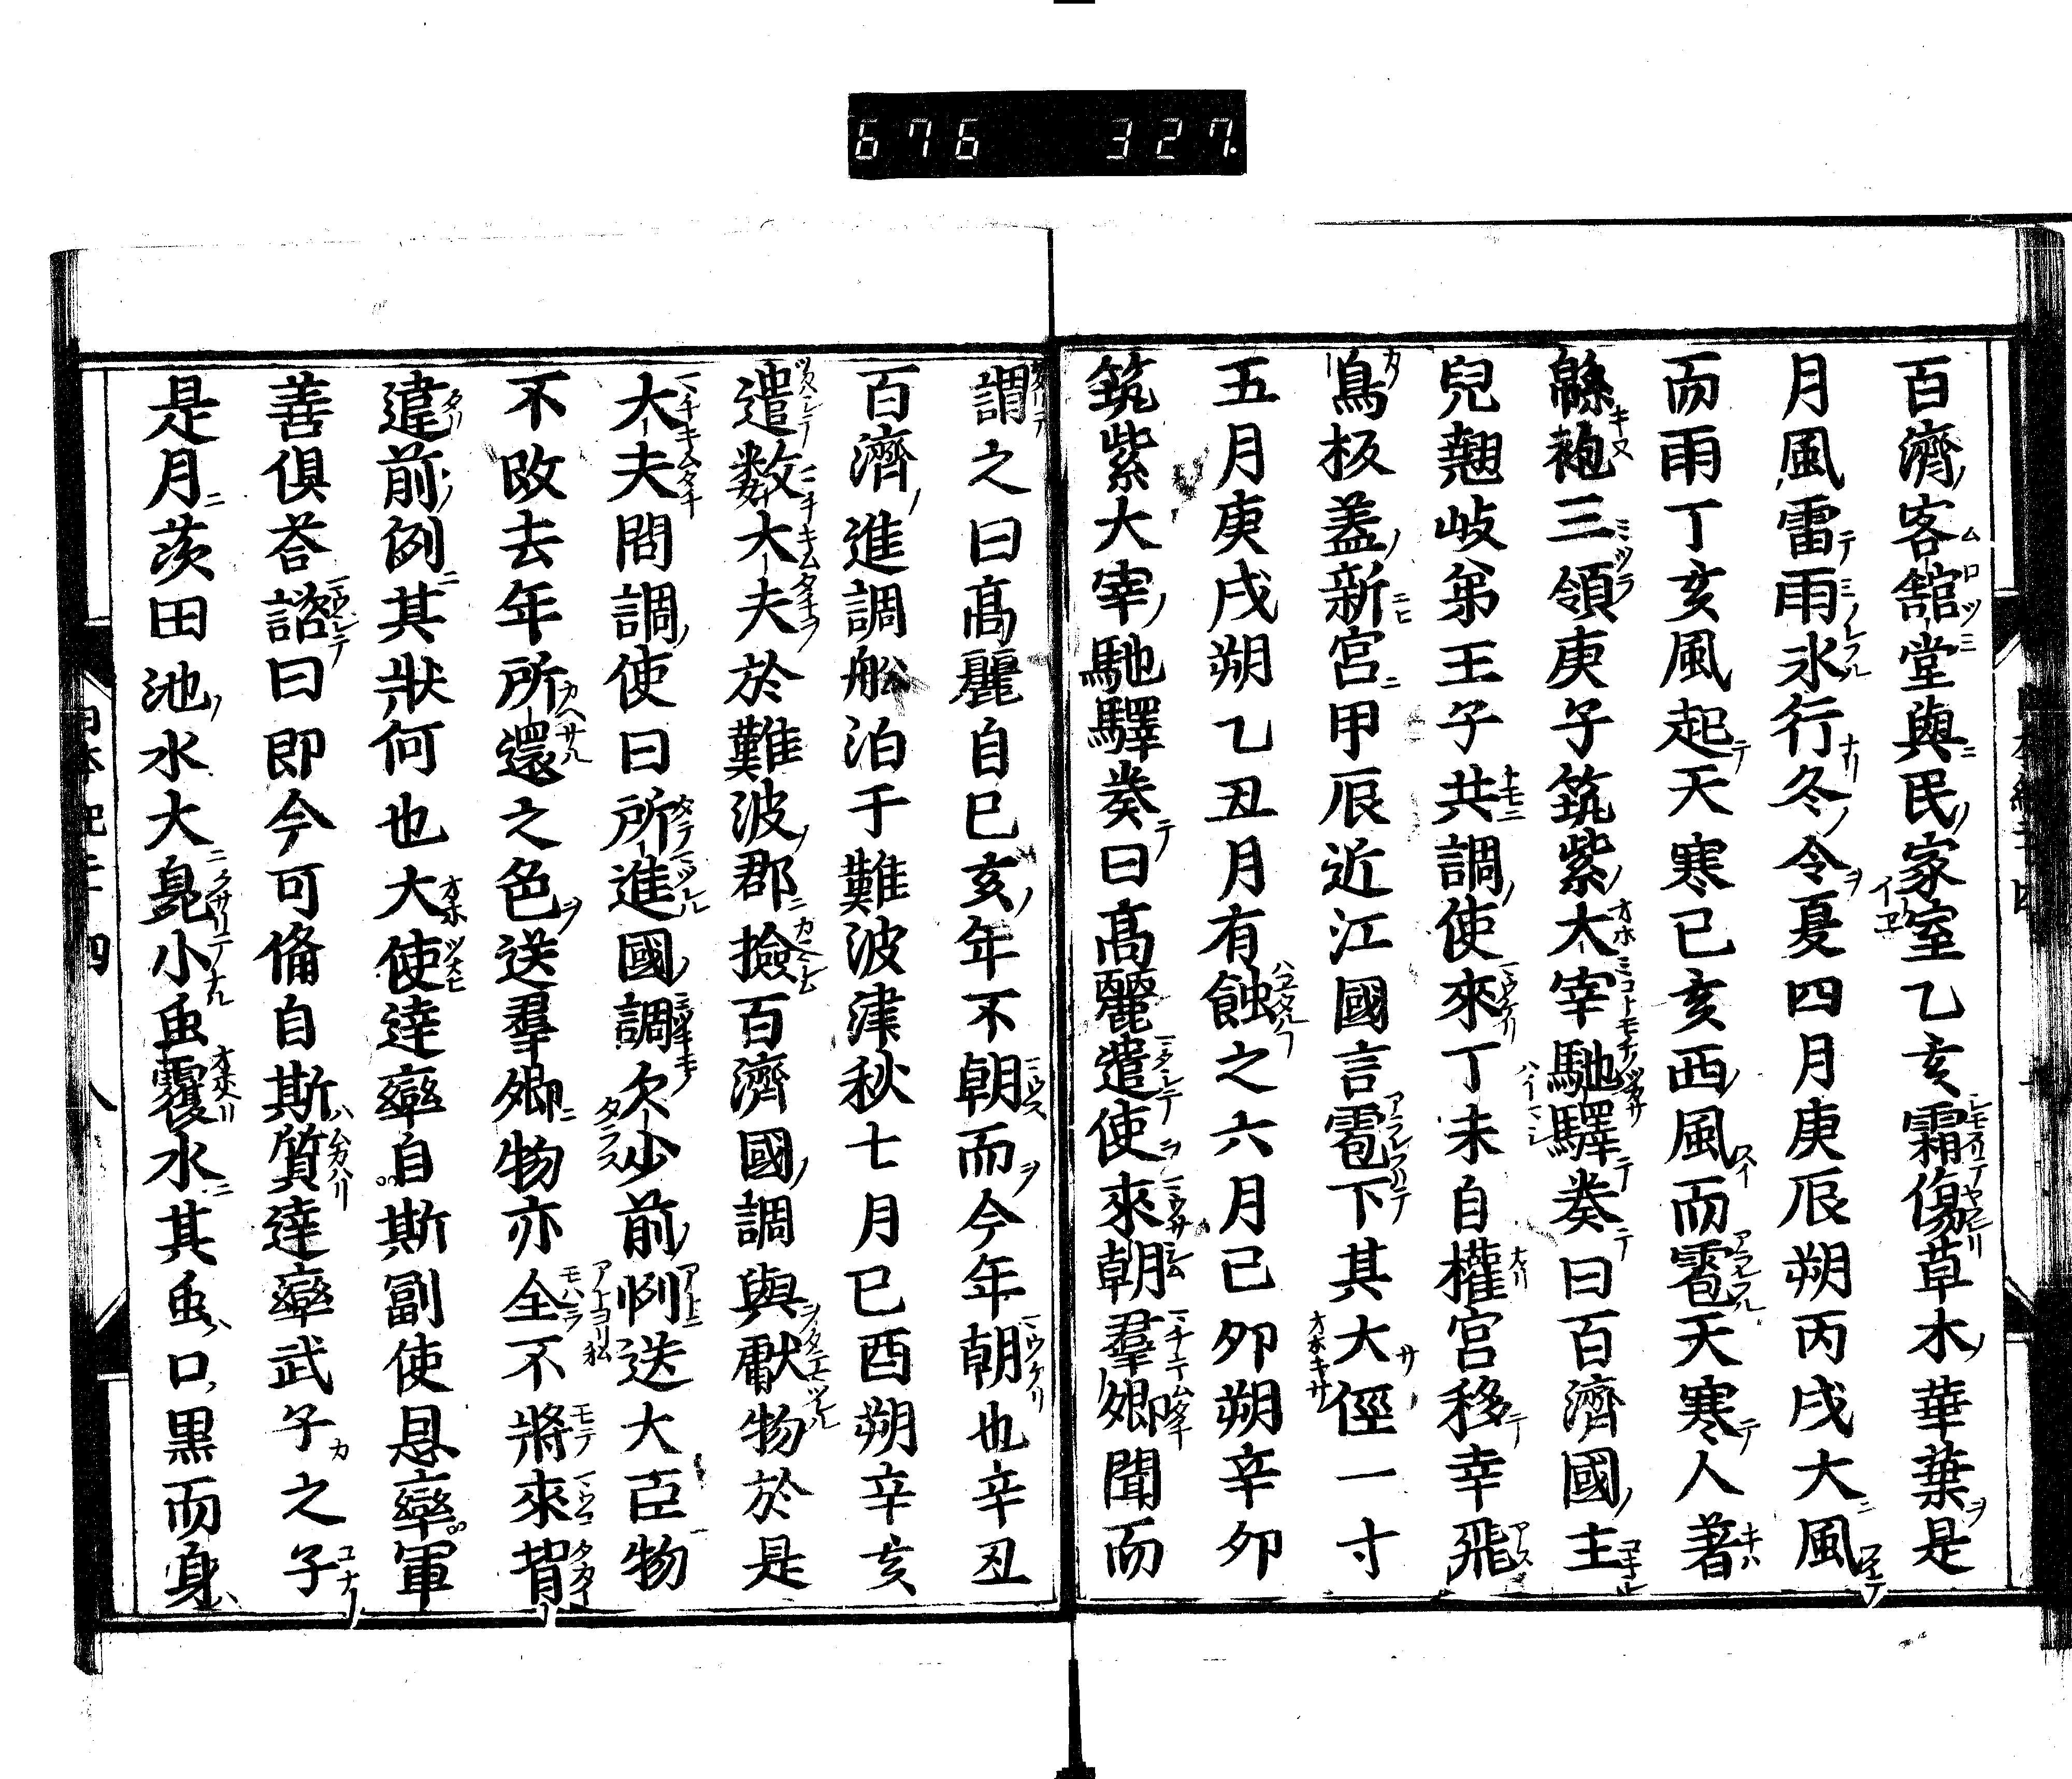 676 327
百濟客館堂與民家室乙亥霜傷草木華葉是
月風雷雨氷行冬令夏四月庚辰朔丙戌大風
而雨丁亥風起天寒已亥西風而雹天寒人著
緜袍三領庚子筑紫大宰馳驛奏曰百濟國主
兒翹岐弟王子共調使來丁未自權宮移幸飛
鳥板蓋新宮甲辰近江國言雹下其大徑一寸
五月庚戌朔乙丑月有蝕之六月己卯朔辛卯
筑紫大宰馳驛奏曰髙麗遣使來朝羣卿聞而
謂之曰髙麗自巳亥年不朝而今年朝也辛丑
百濟進調舩泊于難波津秋七月已酉朔辛亥
遣数大夫於難波郡撿百濟國調與獻物於是
大夫問調使曰所進國調欠少前例送大臣物
不改去年所還之色送羣卿物亦全不將來背
違前例其狀何也大使達率自斯副使恩率軍
善俱荅諮曰即今可俻自斯質達率武子之子
是月茨田池水大臰小虫覆水其虫口黒而身